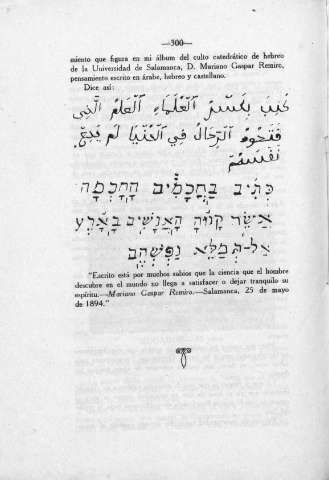 —300—
miento que figura en mi álbum del culto catedrático de hebreo
de la Universidad de Salamanca, D. Mariano Gaspar Remiro,
pensamiento escrito en árabe, hebreo y castellano.
Dice así:
العلماء العلم الذي
الرجال في الدنيا لم
כתיב בחכמים החכמה
אשר האנשים בארץ
אל־תמלא נפשהם
"Escrito está por muchos sabios que la ciencia que el hombre
descubre en el mundo no llega a satisfacer o dejar tranquilo su
espíritu.—Mariano Gaspar Remiro.—Salamanca, 25 de mayo
de 1894."